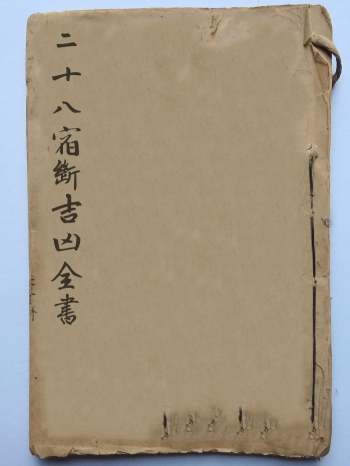 二十八宿斷吉凶全書